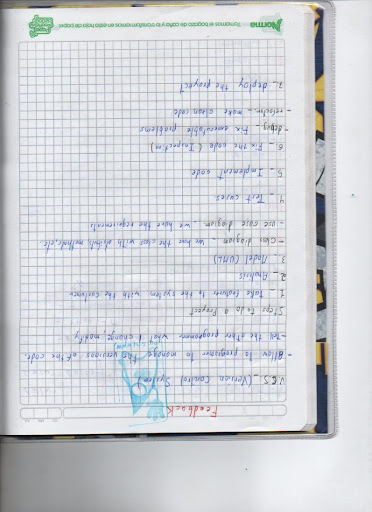 Feedback
VCS _ (Version Control System)
- Allow to programmer to manage the versions of the code.
- Tell the other programmer what I change, modify.
Steps to do a Project
1_ Take features to the system with the customer
2_ Analysis
3_ Model (UML)
- Class diagram _ we have the class with atributs, methods, etc.
- use case diagram _ we have the requirements
4_ Test cases
5_ Implement code
6_ Fix the code (Inspection)
debug Fix executable problems
- make clean code
7_ deploy the project
Norma
Tomamos el bagazo de caña y lo transformamos en esta hoja de papel